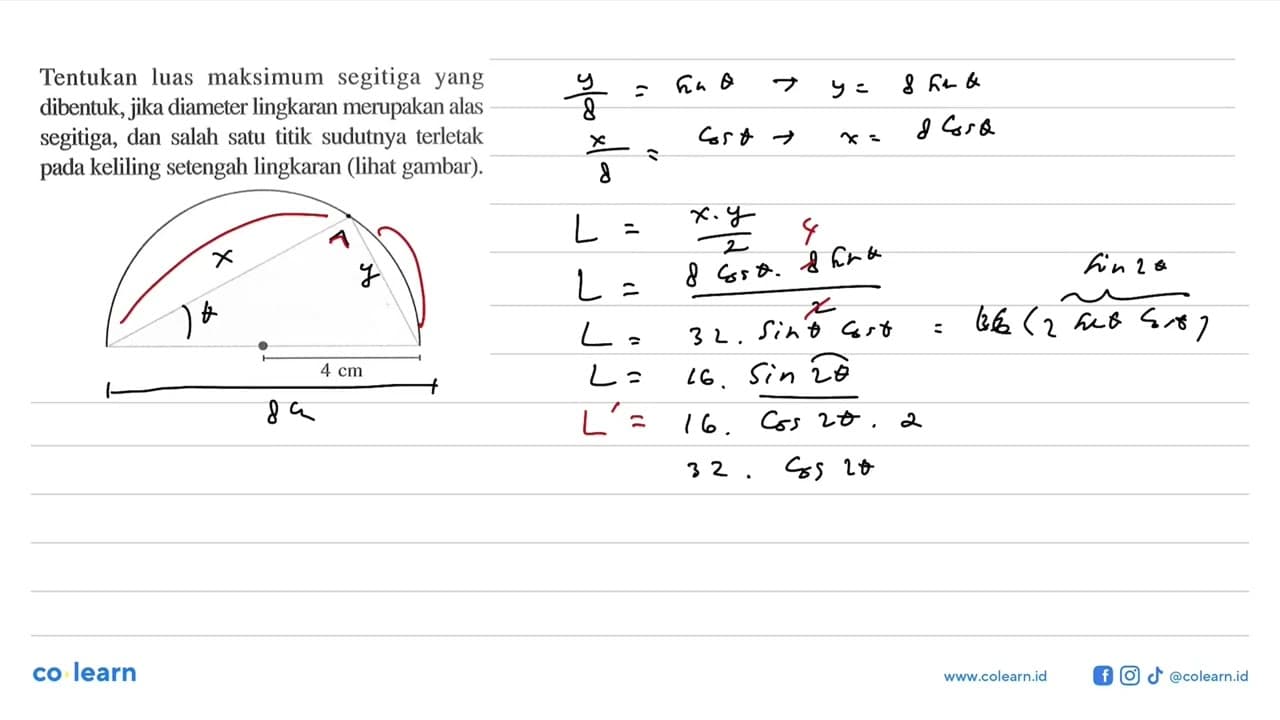 Tentukan luas maksimum segitiga yang
dibentuk, jika diameter lingkaran merupakan alas
segitiga, dan salah satu titik sudutnya terletak
pada keliling setengah lingkaran (lihat gambar).
x
y
θ
4 cm
y/8 = sin θ → y = 8 sin θ
x/8 = cos θ → x = 8 cos θ
L = x.y/2
L = 8 cos θ. 8 sin θ/2
4
sin 2θ
L = 32. sin θ cos θ = (2 sin θ cos θ)
L = 16. sin 2θ
L' = 16. cos 2θ. 2
32. cos 2θ
co·learn
www.colearn.id
@colearn.id